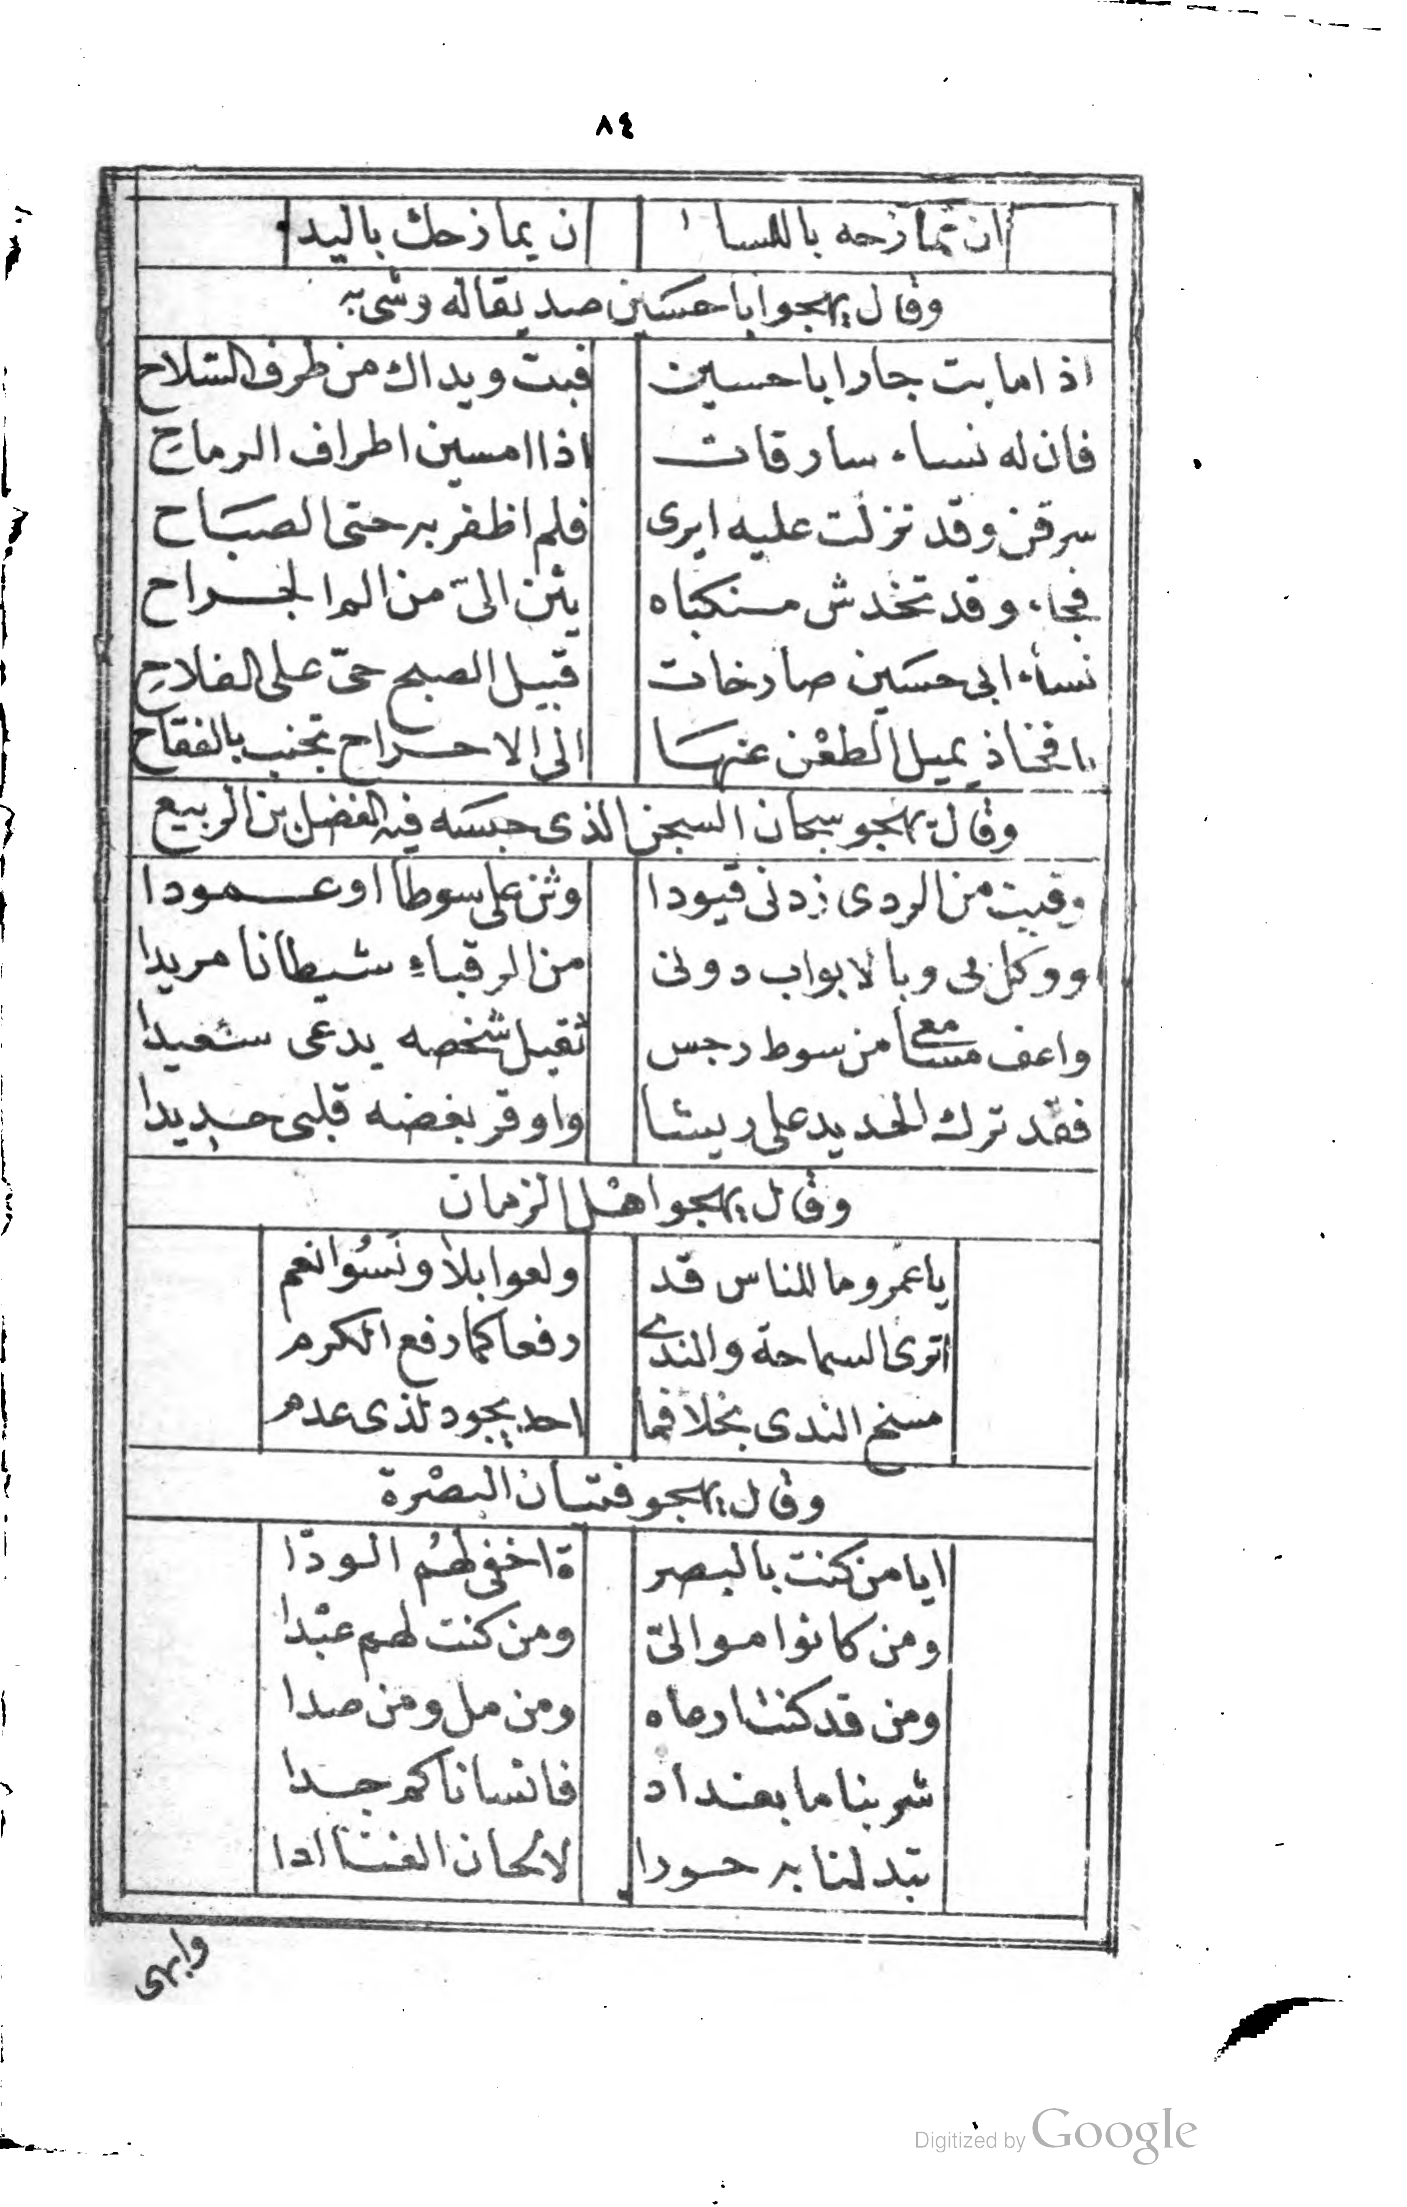 ٨٤
ان تمازحه باللسا ن يمازحك باليد
وقال يهجوا ابا حسين صديقاله وشى به
اذاما بت جارابا حسين فبت ويداك من طرف السلاح
فان له نساء سارقات اذا امسين اطراف الرماح
سرقن وقد نزلت عليه ايرى فلم اظفربه حتى الصباح
فجاء وقد تخدش منكباه يئن الىّ من الم الجراح
نساء ابى حسين صارخات قبيل الصبح حىّ على الفلاح
بافخاذ يميل الطعْن عنها الى الاحراح تجنب بالفقاح
وقال يهجو سجان السجن الذى حبسه فيه الفضل بن الربيع
وقيت من الردى زدنى قيودا وثن على سوطا اوعمودا
ووكل بى وبالابواب دونى من الرقباء شيطانا مريدا
واعف مسامعى من سوط رجس ثقيل شخصه يدعى سعيدا
فقد ترك الحديد على ريشا واوقر بغضه قلبى حديدا
وقال يهجوا اهل الزمان
ياعمرو ما للناس قد ولعوا بلا ونسُوا نعم
اترى السماحة والندى رفعا كما رفع الكرم
مسخ الندى بخلا فما احد يجود لذى عدم
وقال يهجو فتيان البصْرة
ايا من كنت بالبصر ة اخفى لهُم الودّا
ومن كانوا موالىّ ومن كنت لهم عبْدا
ومن قد كنت ارعاه ومن مل ومن صدا
شربنا ما بغداد فانسانا كم جدا
تبدلنا به حورا لالحان الغنا ادا
وابهى
Digitized by Google